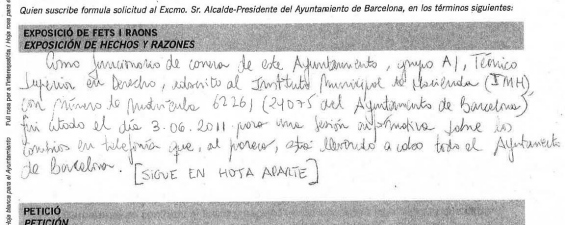 Quien suscribe formula solicitud al Excmo. Sr. Alcalde-Presidente del Ayuntamiento de Barcelona, en los términos siguientes:
EXPOSICIÓ DE FETS I RAONS
EXPOSICIÓN DE HECHOS Y RAZONES
Como funcionario de carrera de este Ayuntamiento, grupo A1, Técnico
Superior en Derecho, adscrito al Instituto Municipal de Hacienda (IMH)
con número de matrícula 62261 (24075 del Ayuntamiento de Barcelona)
fui citado el día 3.06.2011 para una sesión informativa sobre los
cambios en telefonía que, al parecer, está llevando a cabo todo el Ayuntamiento
de Barcelona. [SIGUE EN HOJA APARTE]
PETICIÓ
PETICIÓN
Hoja blanca para el Ayuntamiento
Full rosa per a l'interessat/da / Hoja rosa para